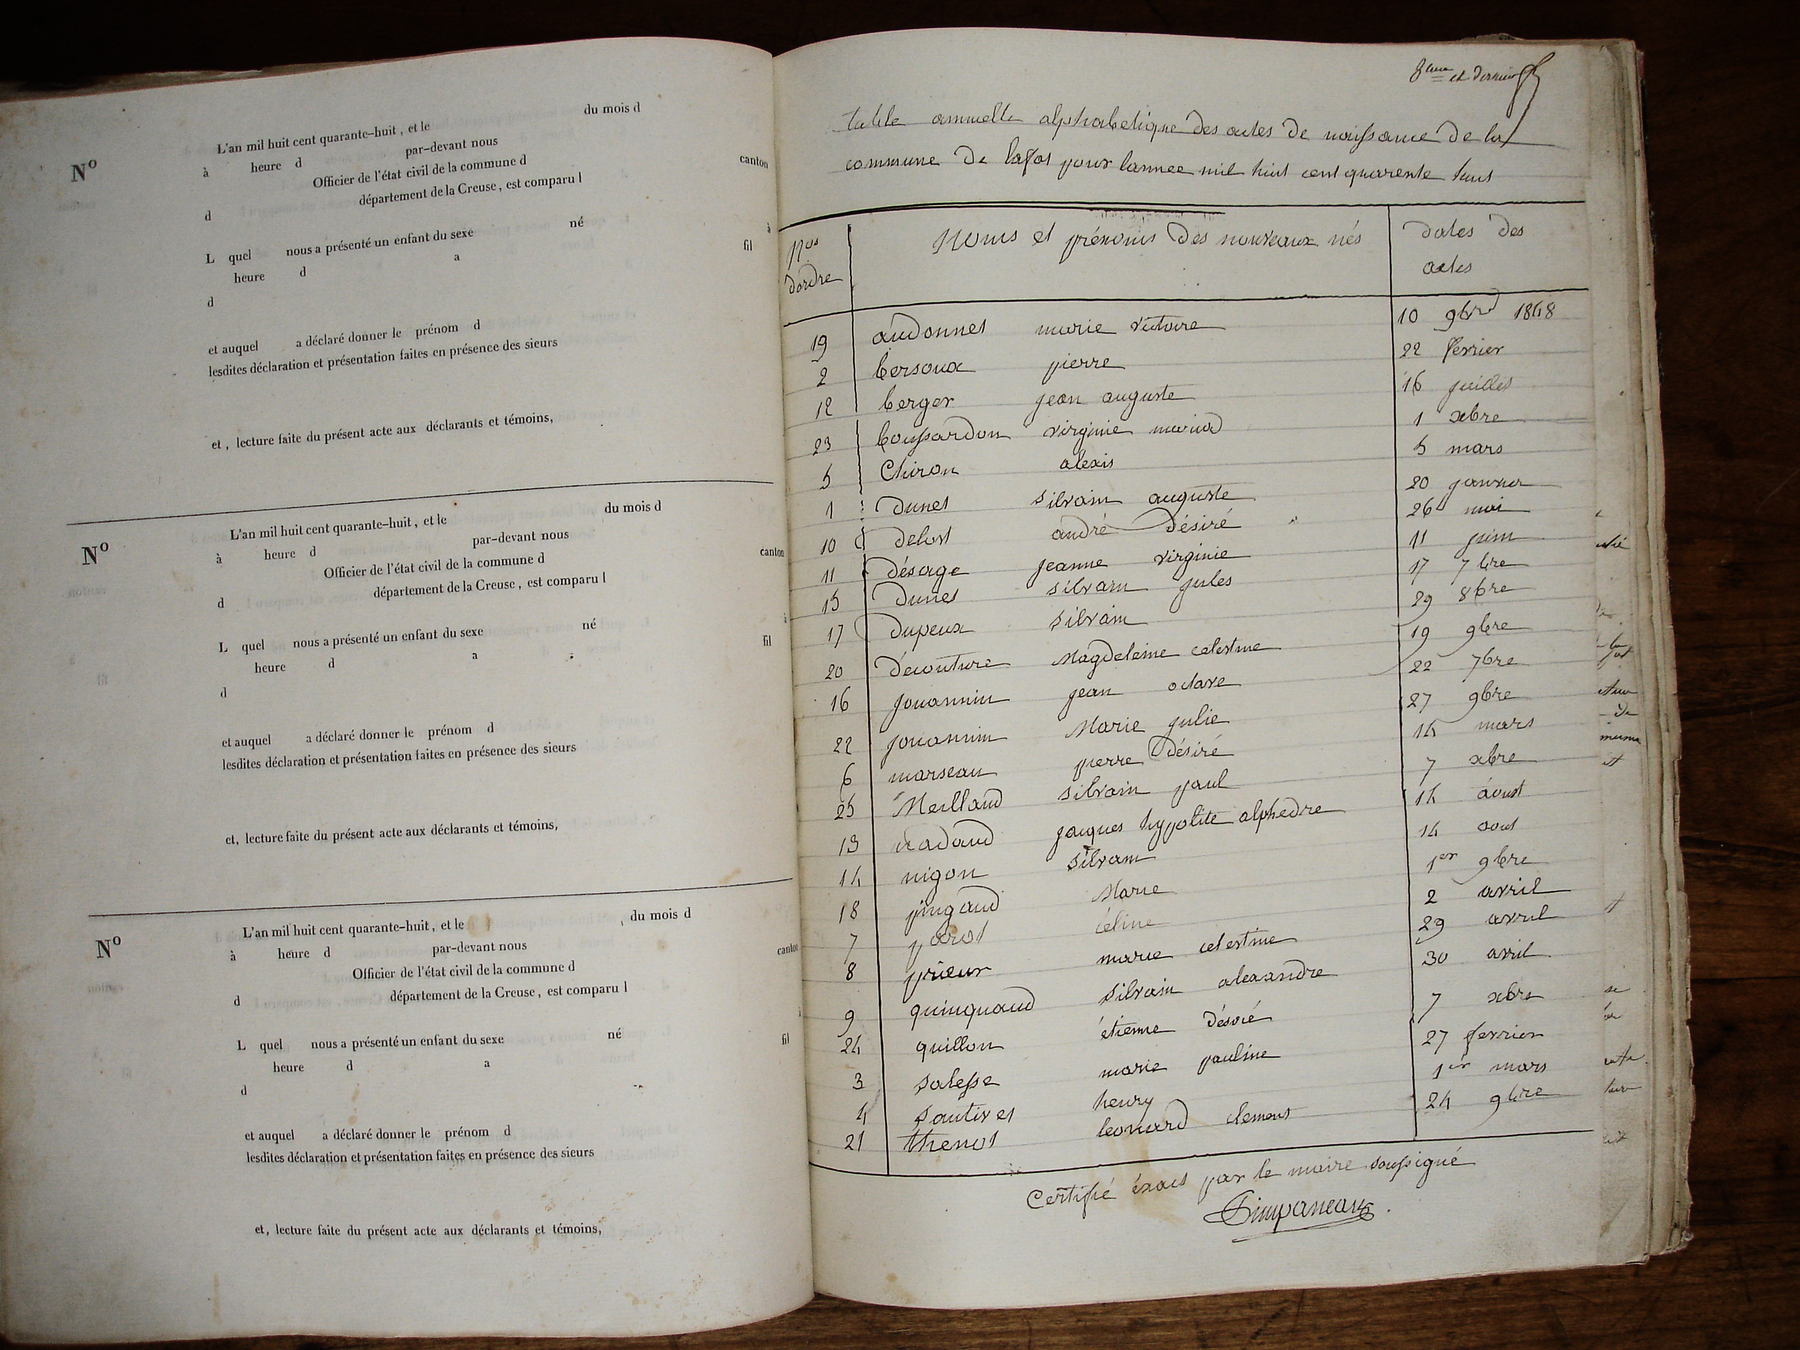 du mois d
L'an mil huit cent quarante-huit, et le
N° à heure d par-devant nous
Officier de l'état civil de la commune d canton
d département de la Creuse, est comparu l
à
L quel nous a présenté un enfant du sexe né fil
heure d a
d
et auquel a déclaré donner le prénom d
lesdites déclaration et présentation faites en présence des sieurs
et, lecture faite du présent acte aux déclarants et témoins,
L'an mil huit cent quarante-huit, et le du mois d
N° à heure d par-devant nous
Officier de l'état civil de la commune d canton
d département de la Creuse, est comparu l
à
L quel nous a présenté un enfant du sexe né fil
heure d a
d
et auquel a déclaré donner le prénom d
lesdites déclaration et présentation faites en présence des sieurs
et, lecture faite du présent acte aux déclarants et témoins,
L'an mil huit cent quarante-huit, et le du mois d
N° à heure d par-devant nous
Officier de l'état civil de la commune d canton
d département de la Creuse, est comparu l
à
L quel nous a présenté un enfant du sexe né fil
heure d a
d
et auquel a déclaré donner le prénom d
lesdites déclaration et présentation faites en présence des sieurs
et, lecture faite du présent acte aux déclarants et témoins,
8eme et dernier
table annuelle alphabetique des actes de naissance de la
commune de lafat pour lannee mil huit cent quarente huit
Nos dordre Noms et prénoms des nouveaux nés dates des actes
19 audonnet marie victoire 10 9bre 1848
2 bersoux pierre 22 fevrier
12 berger jean auguste 16 juillet
23 boussardon virginie maria 1 xbre
5 Chiron alexis 5 mars
1 dunet silvain auguste 20 janvier
10 delost andré désiré 26 mai
11 désage jeanne virginie 11 juin
15 dunet silvain jules 17 7bre
17 dupeux silvain 29 8bre
20 découture Magdeleine celestine 19 9bre
16 jouannin jean octave 22 7bre
22 jouannin Marie julie 27 9bre
6 marseau pierre désiré 14 mars
25 Meillaud silvain paul 7 xbre
13 nadaud jacques hyppolite alphedre 14 áoust
14 nigon silvain 14 aout
18 pingaud Marie 1er 9bre
7 parot céline 2 avril
8 prieur marie celestine 29 avril
9 quinquaud silvain alexandre 30 avril
24 quillon étienne Désiré 7 xbre
3 salesse marie pauline 27 fevrier
4 sautivet henry 1er mars
21 thenot leonard clement 24 9bre
Certifié éxact par le maire soussigné
Pimpaneau